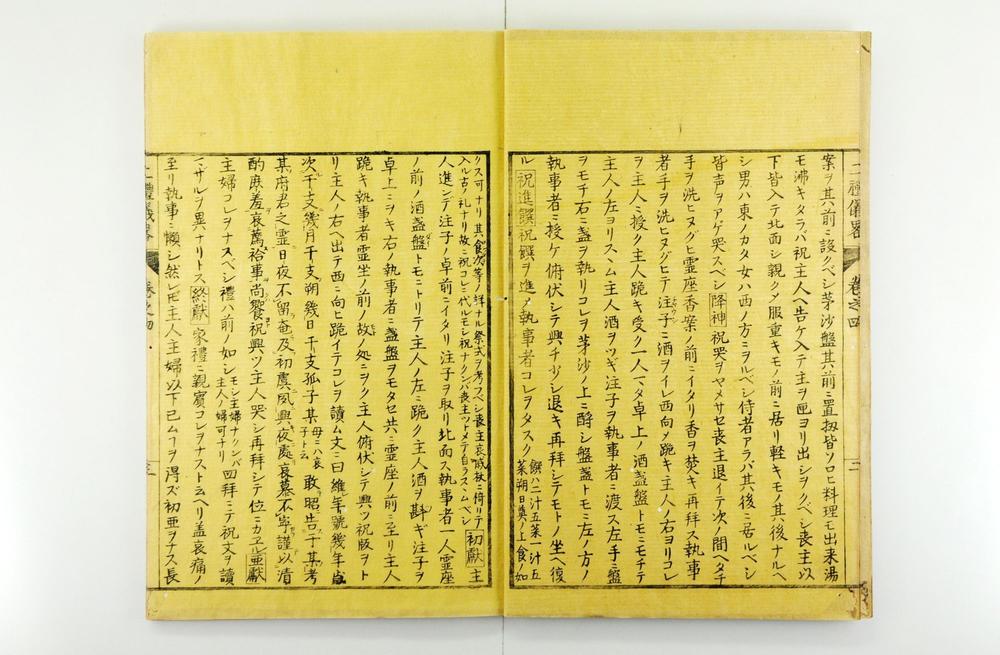 二禮儀畧 卷之四 二
案ヲ其前ニ設クベシ茅沙盤其前ニ置扨皆ソロヒ料理モ出来湯
モ沸キタラバ祝主人ヘ告ケ入テ主ヲ匣ヨリ出シヲクベシ喪主以
下皆入テ北面シ親クメ服重キモノ前ニ居リ軽キモノ其後ナルベ
シ男ハ東ノカタ女ハ西ノ方ニヲルベシ侍者アラバ其後ニ居ルベシ
皆声ヲアゲ哭スベシ降神祝哭ヲヤメサセ喪主退イテ次ノ間ヘタチ
手ヲ洗ヒヌグヒ霊座香案ノ前ニイタリ香ヲ焚キ再拜ス執事
者手ヲ洗ヒヌグヒテ注子ニ酒ヲイレ西向メ跪キ主人ノ右ヨリコレ
ヲ主人ニ授ク主人跪キ受ク一人ハタ卓上ノ酒盞盤トモニモチテ
主人ノ左ヨリスヽム主人酒ヲツギ注子ヲ執事者ニ渡ス左手ニ盤
ヲモチ右ニ盞ヲ執リコレヲ茅沙ノ上ニ酹シ盤盞トモニ左ノ方ノ
執事者ニ授ケ俯伏シテ興チ少シ退キ再拜シテモトノ坐ヘ復
ル祝進饌祝饌ヲ進ノ執事者コレヲタスク饌ハ二汁五菜一汁五
菜朔日奠ノ上食ノ如
クス可ナリ其食次等ノ詳ナル祭式ヲ考フベシ喪主哀戚杖ニ倚リテ
入ル古ノ礼ナリ故ニ祝コレニ代ルモシ祝ナクンバ喪主ツトメテ自ラスヽムベシ初献主
人進ンデ注子ノ卓前ニイタリ注子ヲ取リ北面ス執事者一人霊座
ノ前ノ酒盞盤トモニトリテ主人ノ左ニ跪ク主人酒ヲ斟ギ注子ヲ
卓上ニヲキ右ノ執事者ニ盞盤ヲモタセ共ニ霊座ノ前ニ至リ主人
跪キ執事者霊坐ノ前ノ故ノ処ニヲク主人俯伏シテ興ツ祝版ヲト
リ主人ノ右ヘ出テ西ニ向ヒ跪イテコレヲ讀ム文ニ曰維年號幾年歳
次干支幾月干支朔幾日干支孤子某母ニハ哀子ト云敢昭告于某考
某府君之霊日夜不留奄及初虞夙興夜處哀慕不寧謹以清
酌庶羞哀薦祫事尚饗祝興ツ主人哭シ再拜シテ位ニカヱル亜獻
主婦コレヲナスベシ禮ハ前ノ如シモシ主婦ナクンバ主人ノ婦可ナリ四拜ニテ祝文ヲ讀
マザルヲ異ナリトス終獻家禮ニ親賓コレヲナスト云ヘリ盖哀痛ノ
至リ執事ニ懶シ然レ𪜈主人主婦以下已ムヿヲ得ズ初亜ヲナス長
二禮儀畧 卷之四 三